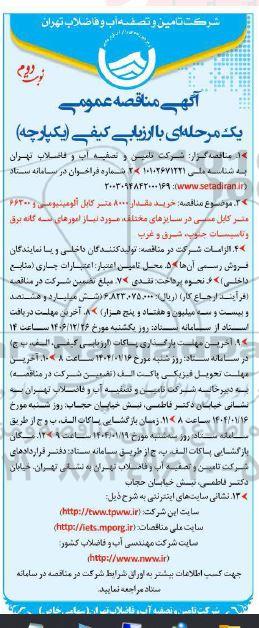 شرکت تامین و تصفیه آب و فاضلاب تهران
نوبت دوم
آگهی مناقصه عمومی
یک مرحله‌ای با ارزیابی کیفی (یکپارچه)
۱. مناقصه‌گزار: شرکت تامین و تصفیه آب و فاضلاب تهران
به شناسه ملی ۱۰۱۰۲۶۷۱۲۲۱ ۲. شماره فراخوان در سامانه ستاد
(www.setadiran.ir): ۲۰۰۳۰۹۴۸۴۲۰۰۰۱۶۹
۳. موضوع مناقصه: خرید مقدار ۸۰۰۰ متر کابل آلومینیومی و ۶۶۳۰۰
متر کابل مسی در سایزهای مختلف، مورد نیاز امورهای سه گانه برق
و تاسیسات جنوب، شرق و غرب
۴. الزامات شرکت در مناقصه: تولیدکنندگان داخلی و یا نمایندگان
فروش رسمی آن‌ها ۵. محل تامین اعتبار: اعتبارات جاری (منابع
داخلی) ۶. نحوه پرداخت: نقدی ۷. مبلغ تضمین شرکت در مناقصه
(فرآیند ارجاع کار) (ریال): ۶.۸۲۳.۰۷۵.۰۰۰ (شش میلیارد و هشتصد
و بیست و سه میلیون و هفتاد و پنج هزار) ۸. آخرین مهلت دریافت
اسناد از سامانه ستاد: روز یکشنبه مورخ ساعت ۱۴
۹. آخرین مهلت بارگذاری پاکات (ارزیابی کیفی، الف، ب، ج)
در سامانه ستاد: روز شنبه مورخ ۱۴۰۴/۰۱/۱۶ ساعت ۸ ۱۰. آخرین
مهلت تحویل فیزیکی پاکت الف (تضمین شرکت در مناقصه)
به دبیرخانه شرکت تامین و تصفیه آب و فاضلاب تهران به
نشانی خیابان دکتر فاطمی، نبش خیابان حجاب: روز شنبه مورخ
۱۴۰۴/۰۱/۱۶ ساعت ۸ ۱۱. زمان بازگشایی پاکات الف، ب و ج از طریق
سامانه ستاد: روز سه‌شنبه مورخ ۱۴۰۴/۰۱/۱۹ ساعت ۹ ۱۲. مکان
بازگشایی پاکات الف، ب، ج از طریق سامانه ستاد: دفتر قراردادهای
شرکت تامین و تصفیه آب و فاضلاب تهران به نشانی تهران، خیابان
دکتر فاطمی، نبش خیابان حجاب
۱۳. نشانی سایت‌های اینترنتی به شرح ذیل:
سایت این شرکت: (http://tww.tpww.ir)
سایت ملی مناقصات: (http://iets.mporg.ir)
سایت شرکت مهندسی آب و فاضلاب کشور:
(http://www.nww.ir)
جهت کسب اطلاعات بیشتر به اوراق شرایط شرکت در مناقصه در سامانه
ستاد مراجعه نمایید.
شرکت تامین و تصفیه آب و فاضلاب تهران (سهامی خاص)